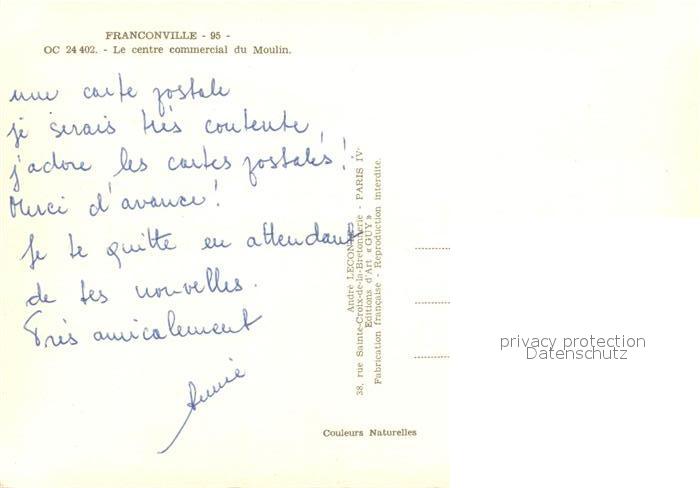 FRANCONVILLE - 95 -
OC 24 402. - Le centre commercial du Moulin.
une carte postale
je serais très contente,
j'adore les cartes postales !
Merci d'avance !
Je te quitte en attendant
de tes nouvelles.
Très amicalement
Annie
André LECONTE
38, rue Sainte-Croix-de-la-Bretonnerie - PARIS IV-
Editions d'Art «GUY»
Fabrication française - Reproduction interdite.
Couleurs Naturelles
privacy protection
Datenschutz